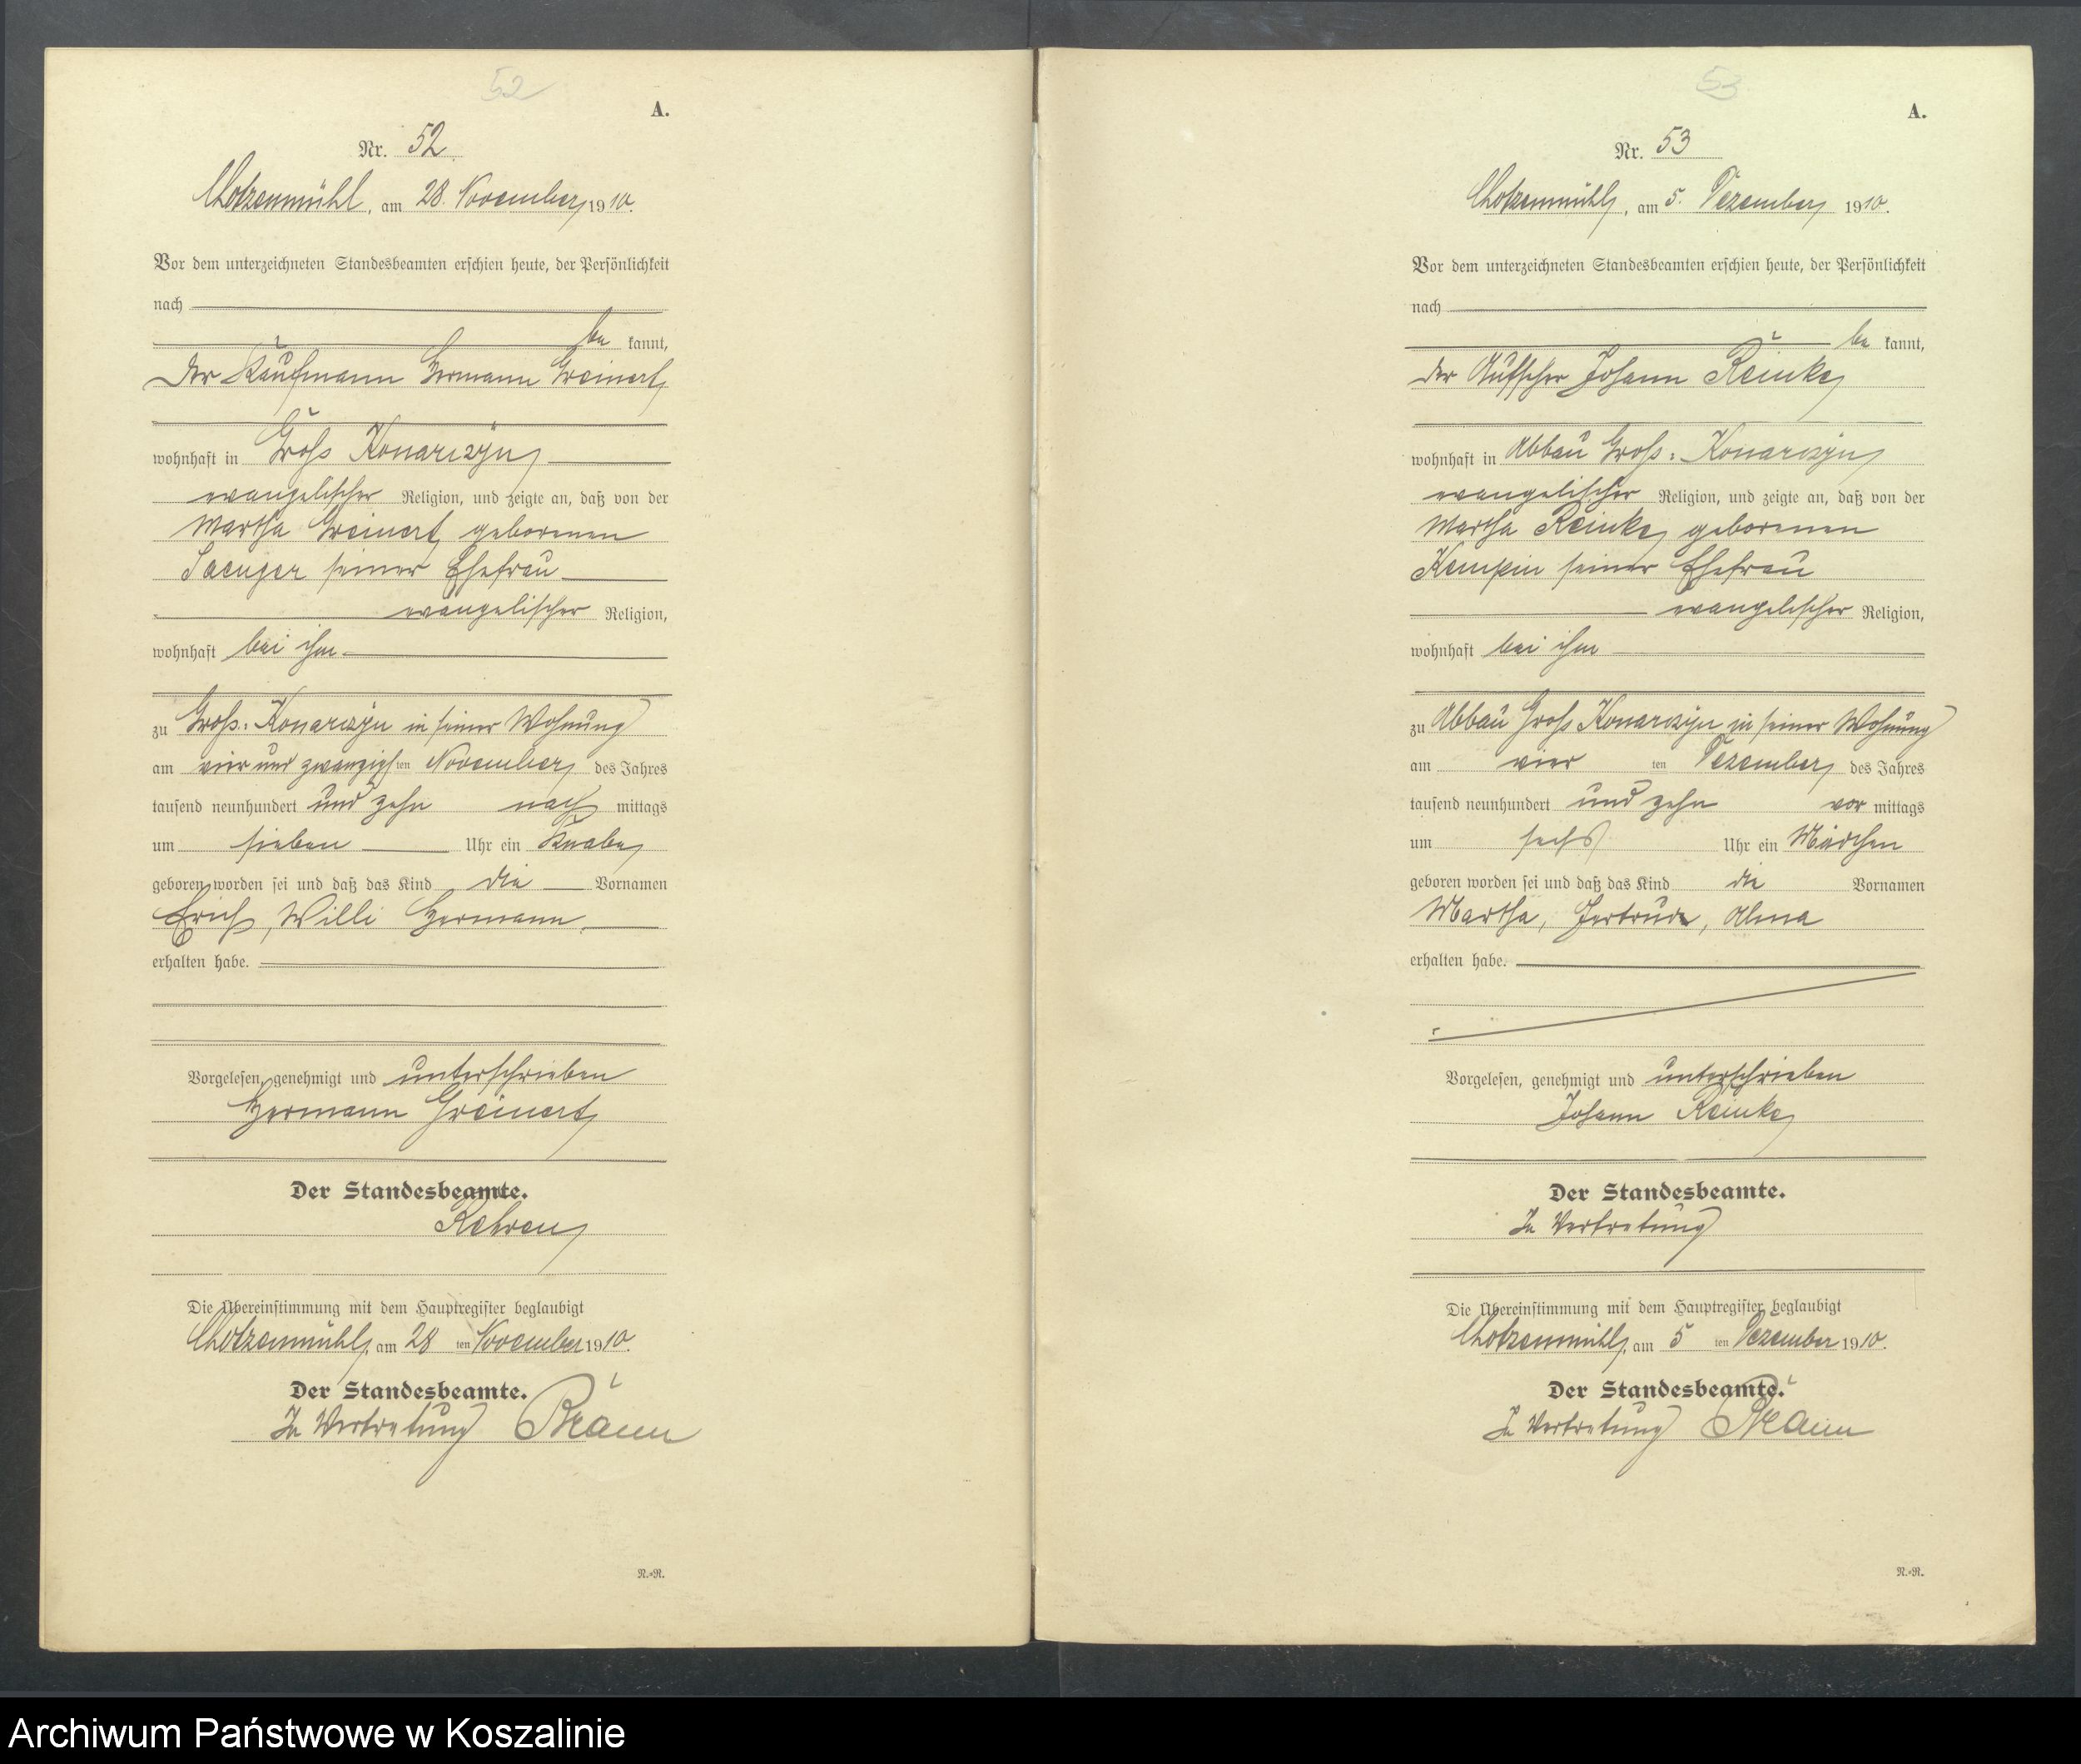 52
A.
Nr. 52.
Chotzenmühl, am 28. November 1910.
Vor dem unterzeichneten Standesbeamten erschien heute, der Persönlichkeit
nach
be kannt,
der Kaufmann Hermann Greinert
wohnhaft in Groß Konarczyn
evangelischer Religion, und zeigte an, daß von der
Martha Greinert, geborenen
Saenger seiner Ehefrau
evangelischer Religion,
wohnhaft bei ihm
zu Groß-Konarczyn in seiner Wohnung
am vier und zwanzigsten November des Jahres
tausend neunhundert und zehn nach mittags
um sieben Uhr ein Knabe
geboren worden sei und daß das Kind die Vornamen
Erich, Willi Hermann
erhalten habe.
Vorgelesen, genehmigt und unterschrieben
Hermann Greinert
Der Standesbeamte.
Die Übereinstimmung mit dem Hauptregister beglaubigt
Chotzenmühl, am 28 ten November 1910.
Der Standesbeamte.
In Vertretung Braun
N.-R.
53
A.
Nr. 53
Chotzenmühl, am 5. Dezember 1910.
Vor dem unterzeichneten Standesbeamten erschien heute, der Persönlichkeit
nach
be kannt,
der Johann Reinke
wohnhaft in Abbau Groß-Konarczyn
evangelischer Religion, und zeigte an, daß von der
Martha Reinke, geborenen
Kempin seiner Ehefrau
evangelischer Religion,
wohnhaft bei ihm
zu Abbau Groß Konarczyn in seiner Wohnung
am vier ten Dezember des Jahres
tausend neunhundert und zehn vor mittags
um sechs Uhr ein Mädchen
geboren worden sei und daß das Kind die Vornamen
Martha, Gertrude, Alma
erhalten habe.
Vorgelesen, genehmigt und unterschrieben
Johann Reinke
Der Standesbeamte.
In Vertretung
Die Übereinstimmung mit dem Hauptregister beglaubigt
Chotzenmühl, am 5 ten Dezember 1910.
Der Standesbeamte.
In Vertretung Braun
N.-R.
Archiwum Państwowe w Koszalinie